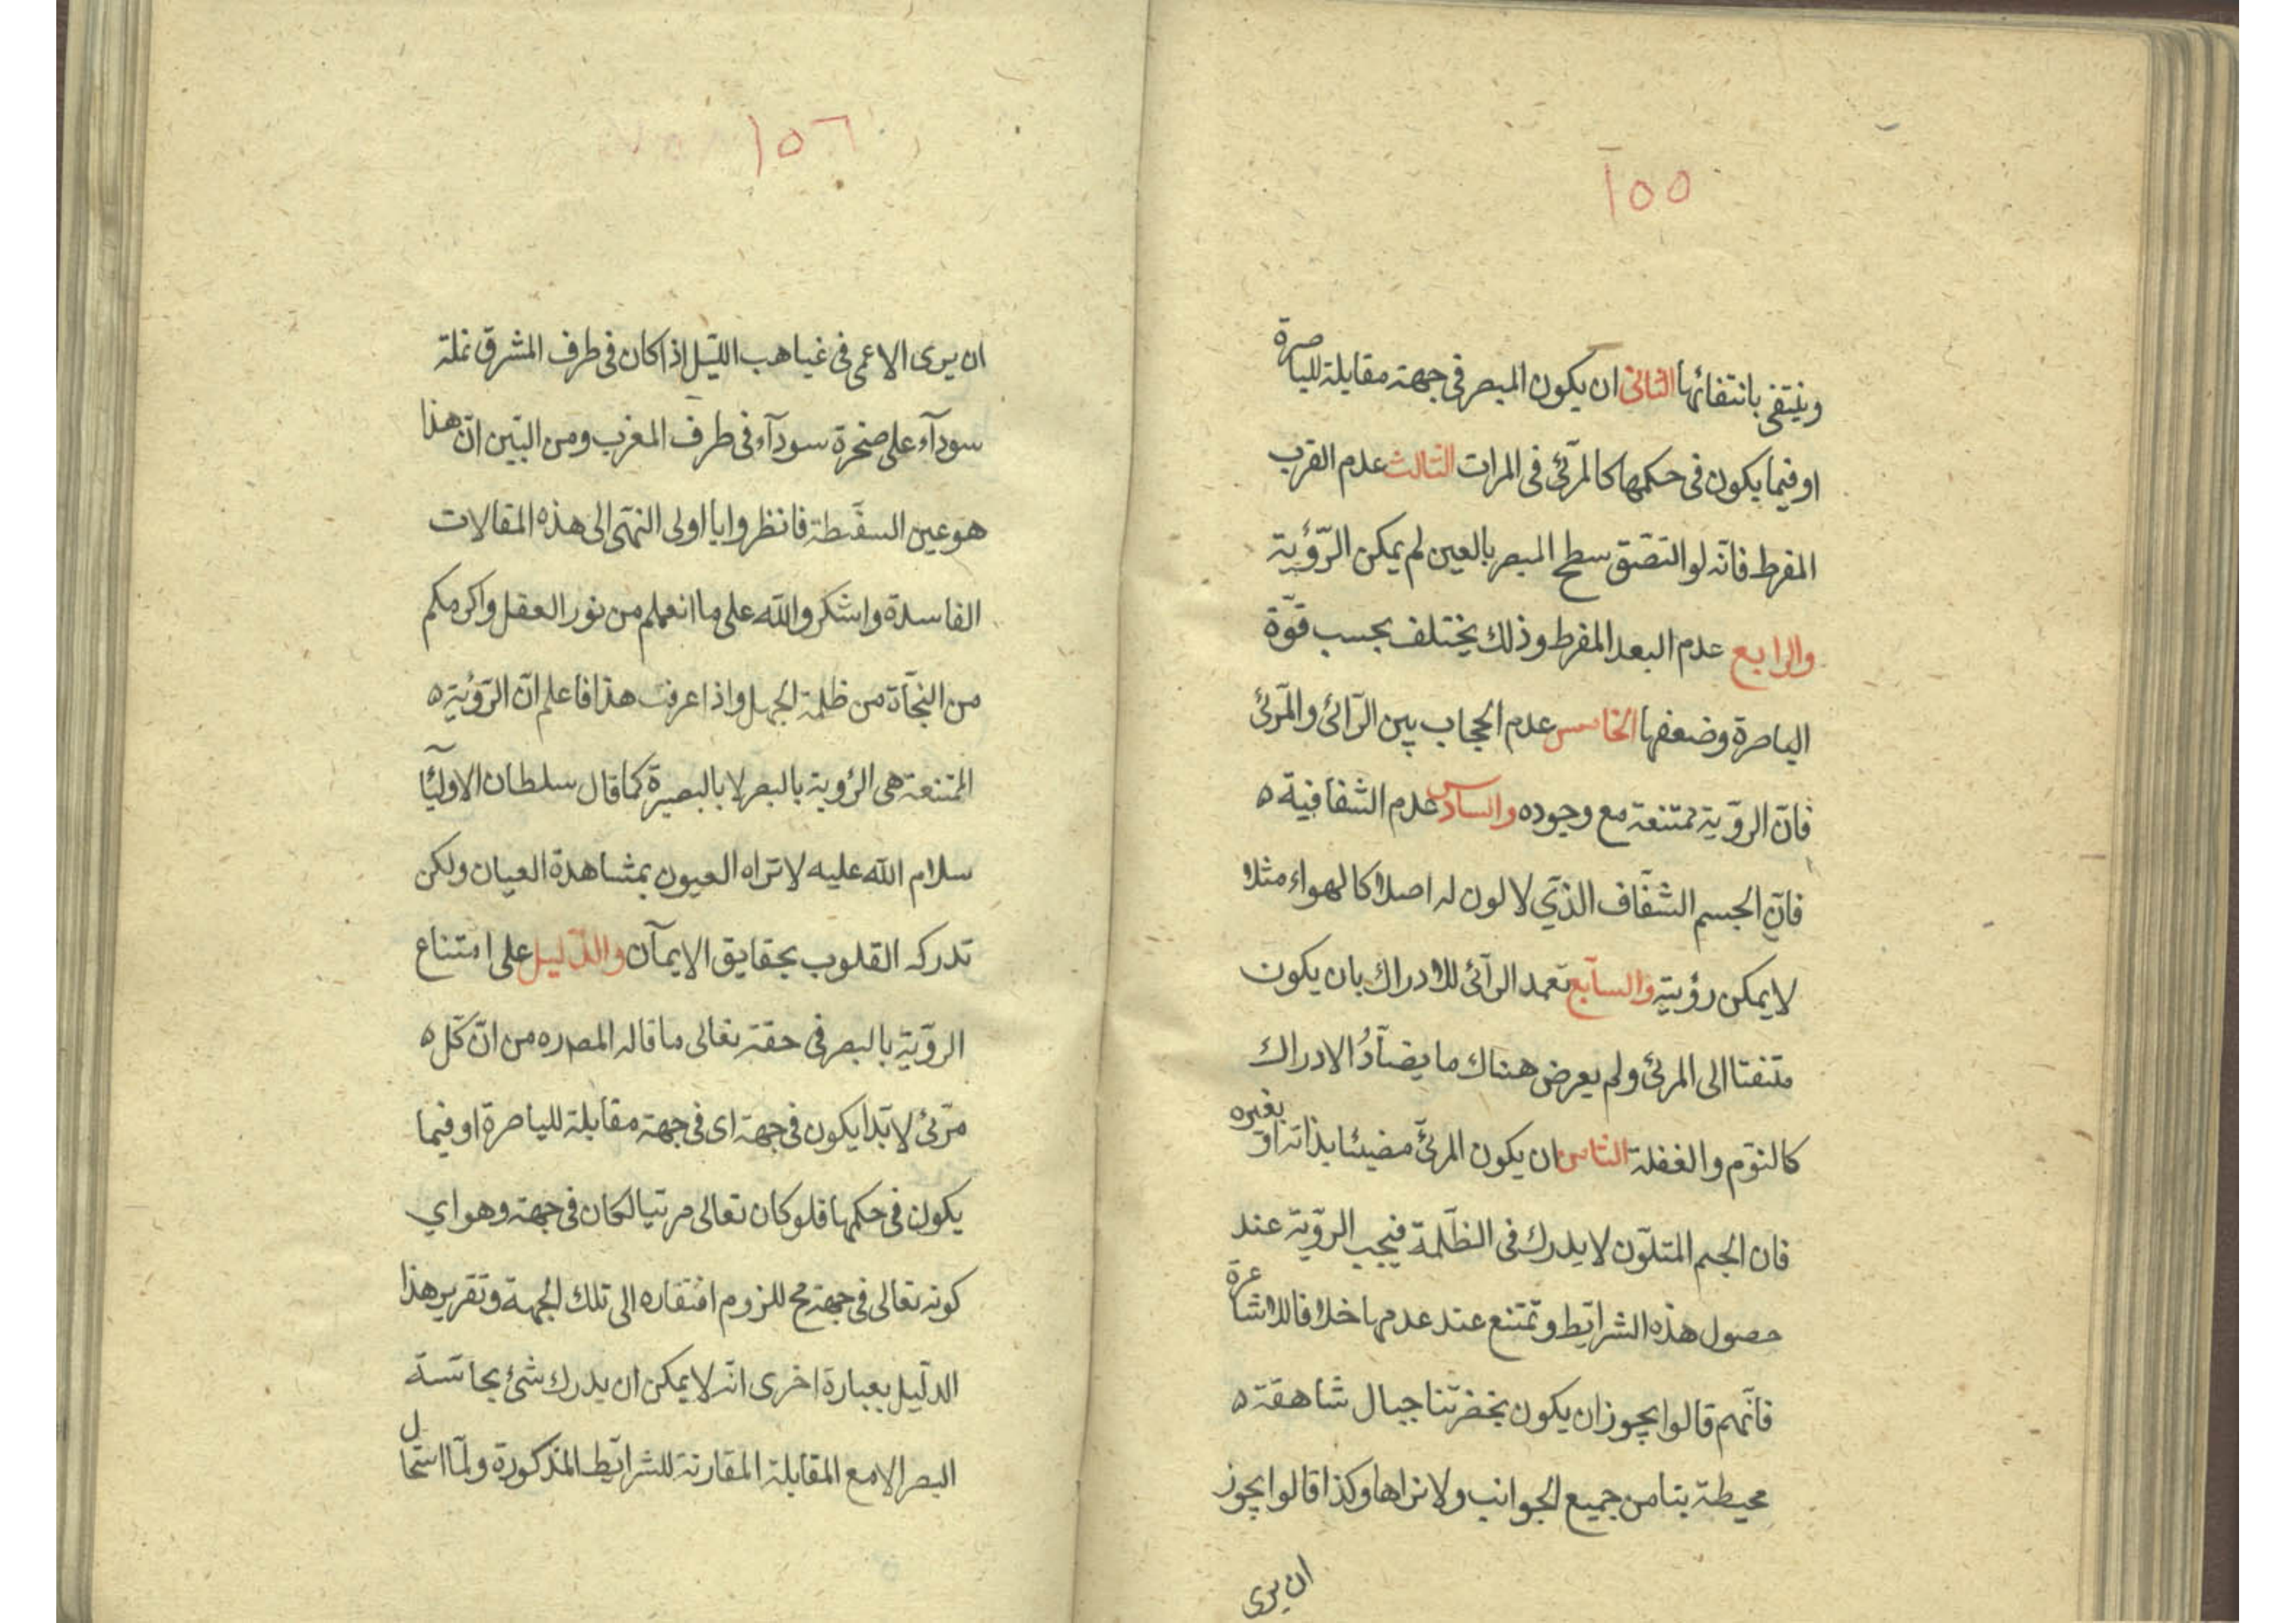 ١٥٥
وينتفى بانتفائها الثانى ان يكون المبصر فى جهة مقابلة للباصرة
او فيما يكون فى حكمها كالمرئى فى المرات الثالث عدم القرب
المفرط فانه لو التصق سطح المبصر بالعين لم يمكن الرؤية
والرابع عدم البعد المفرط وذلك يختلف بحسب قوّة
الباصرة وضعفها الخامس عدم الحجاب بين الرآئى والمرئى
فانّ الرؤية ممتنعة مع وجوده والسادس عدم الشفافية ه
فانّ الجسم الشفّاف الذّي لا لون له اصلا كالهواء مثلا
لا يمكن رؤيته والسابع تعمد الرآئى للادراك بان يكون
متفتا الى المرئى ولم يعرض هناك ما يضادُّ الادراك
كالنوم والغفلة الثامن ان يكون المرئىّ مضيئا بذاته او بغيره
فان الجسم المتلوّن لا يدرك فى الظلمة فيجب الرؤية عند
حصول هذه الشرائط وتمتنع عند عدمها خلافا للاشاعرة
فانّهم قالوا يجوز ان يكون بحضرتنا جبال شاهقة ه
محيطة بنا من جميع الجوانب ولا نراها وكذا قالوا يجوز
ان يرى
١٥٦
ان يرى الاعمى فى غياهب الليّل اذا كان فى طرف المشرق نملة
سودآء على صخرة سودآء فى طرف المغرب ومن البيّن انّ هذا
هو عين السفسطة فانظروا يا اولى النهى الى هذه المقالات
الفاسدة واشكروا الله على ما انعمكم من نور العقل واكرمكم
من النجاة من ظلمة الجهل واذا عرفت هذا فاعلم انّ الرؤية ه
الممتنعة هى الرؤية بالبصر لا بالبصيرة كما قال سلطان الاوليآ
سلام الله عليه لا تراه العيون بمشاهدة العيان ولكن
تدركه القلوب بحقايق الايمآن والدّليل على امتناع
الرؤية بالبصر فى حقه تعالى ما قاله المصره من انّ كلّ ه
مرئى لا بد ان يكون فى جهة اى فى جهة مقابلة للباصرة او فيما
يكون فى حكمها فلو كان تعالى مرئيا لكان فى جهة وهو اي
كونه تعالى فى جهة مح للزوم افتقاره الى تلك الجهة وتقرير هذا
الدليل بعبارة اخرى انه لا يمكن ان يدرك شئ بحاسّة
البصر الا مع المقابلة المقارنة للشرائط المذكورة ولمّا استحال